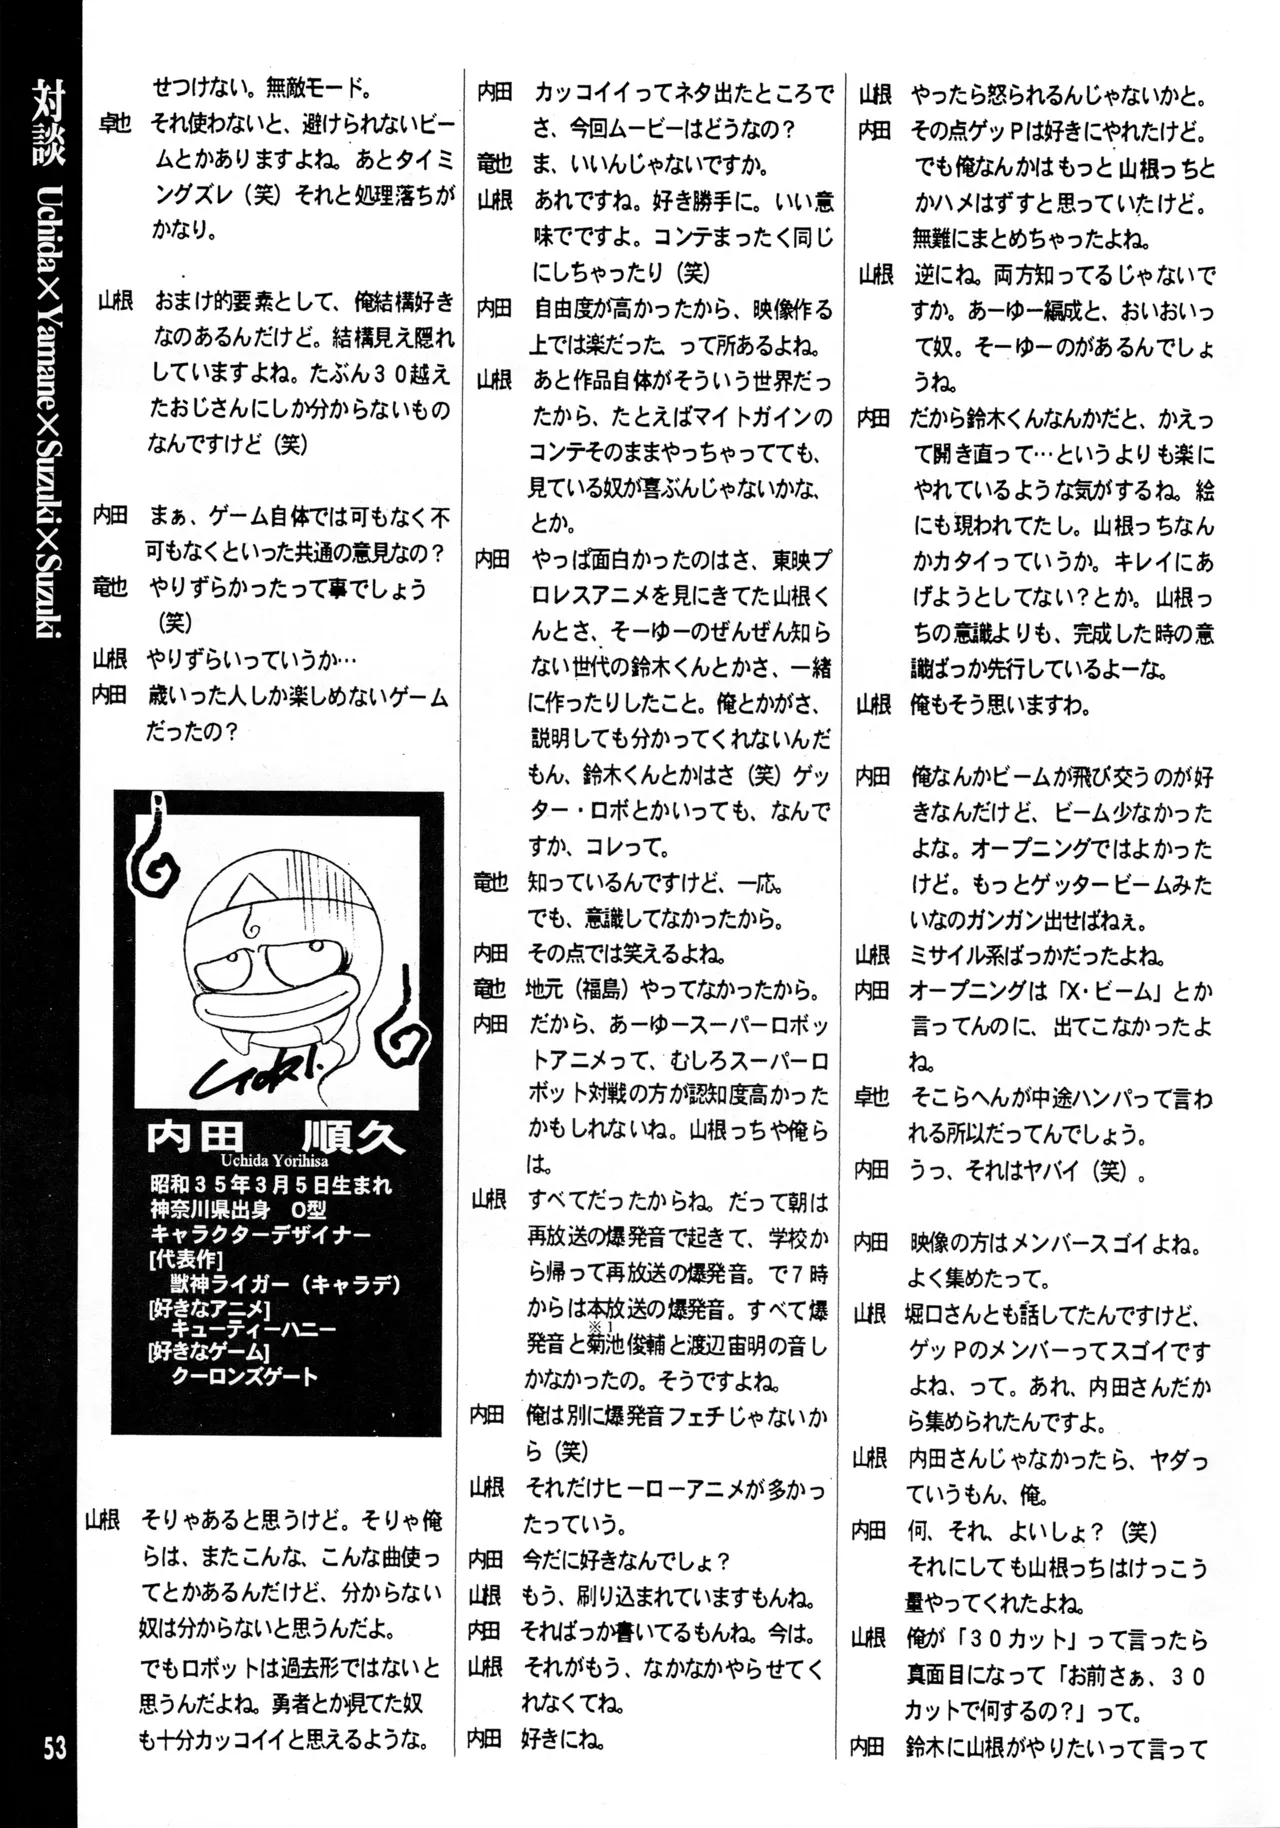 対談 Uchida×Yamane×Suzuki×Suzuki
せつけない。無敵モード。
卓也 それ使わないと、避けられないビー
ムとかありますよね。あとタイミ
ングズレ（笑）それと処理落ちが
かなり。
山根 おまけ的要素として、俺結構好き
なのあるんだけど。結構見え隠れ
していますよね。たぶん３０越え
たおじさんにしか分からないもの
なんですけど（笑）
内田 まぁ、ゲーム自体では可もなく不
可もなくといった共通の意見なの？
竜也 やりずらかったって事でしょう
（笑）
山根 やりずらいっていうか…
内田 歳いった人しか楽しめないゲーム
だったの？
内田 順久
Uchida Yorihisa
昭和３５年３月５日生まれ
神奈川県出身 O型
キャラクターデザイナー
[代表作]
獣神ライガー（キャラデ）
[好きなアニメ]
キューティーハニー
[好きなゲーム]
クーロンズゲート
山根 そりゃあると思うけど。そりゃ俺
らは、またこんな、こんな曲使っ
てとかあるんだけど、分からない
奴は分からないと思うんだよ。
でもロボットは過去形ではないと
思うんだよね。勇者とか見てた奴
も十分カッコイイと思えるような。
53
内田 カッコイイってネタ出たところで
さ、今回ムービーはどうなの？
竜也 ま、いいんじゃないですか。
山根 あれですね。好き勝手に。いい意
味でですよ。コンテまったく同じ
にしちゃったり（笑）
内田 自由度が高かったから、映像作る
上では楽だった、って所あるよね。
山根 あと作品自体がそういう世界だっ
たから、たとえばマイトガインの
コンテそのままやっちゃってても、
見ている奴が喜ぶんじゃないかな、
とか。
内田 やっぱ面白かったのはさ、東映プ
ロレスアニメを見にきてた山根く
んとさ、そーゆーのぜんぜん知ら
ない世代の鈴木くんとかさ、一緒
に作ったりしたこと。俺とかがさ、
説明しても分かってくれないんだ
もん、鈴木くんとかはさ（笑）ゲッ
ター・ロボとかいっても、なんで
すか、コレって。
竜也 知っているんですけど、一応。
でも、意識してなかったから。
内田 その点では笑えるよね。
竜也 地元（福島）やってなかったから。
内田 だから、あーゆースーパーロボッ
トアニメって、むしろスーパーロ
ボット対戦の方が認知度高かった
かもしれないね。山根っちや俺ら
は。
山根 すべてだったからね。だって朝は
再放送の爆発音で起きて、学校か
ら帰って再放送の爆発音。で７時
からは本放送の爆発音。すべて爆
※１
発音と菊池俊輔と渡辺宙明の音し
かなかったの。そうですよね。
内田 俺は別に爆発音フェチじゃないか
ら（笑）
山根 それだけヒーローアニメが多かっ
たっていう。
内田 今だに好きなんでしょ？
山根 もう、刷り込まれていますもんね。
内田 そればっか書いてるもんね。今は。
山根 それがもう、なかなかやらせてく
れなくてね。
内田 好きにね。
山根 やったら怒られるんじゃないかと。
内田 その点ゲッPは好きにやれたけど。
でも俺なんかはもっと山根っちと
かハメはずすと思っていたけど。
無難にまとめちゃったよね。
山根 逆にね。両方知ってるじゃないで
すか。あーゆー編成と、おいおいっ
て奴。そーゆーのがあるんでしょ
うね。
内田 だから鈴木くんなんかだと、かえっ
て開き直って…というよりも楽に
やれているような気がするね。絵
にも現われてたし。山根っちなん
かカタイっていうか。キレイにあ
げようとしてない？とか。山根っ
ちの意識よりも、完成した時の意
識ばっか先行しているよーな。
山根 俺もそう思いますわ。
内田 俺なんかビームが飛び交うのが好
きなんだけど、ビーム少なかった
よな。オープニングではよかった
けど。もっとゲッタービームみた
いなのガンガン出せばねぇ。
山根 ミサイル系ばっかだったよね。
内田 オープニングは「X・ビーム」とか
言ってんのに、出てこなかったよ
ね。
卓也 そこらへんが中途ハンパって言わ
れる所以だってんでしょう。
内田 うっ、それはヤバイ（笑）。
内田 映像の方はメンバースゴイよね。
よく集めたって。
山根 堀口さんとも話してたんですけど、
ゲッPのメンバーってスゴイです
よね、って。あれ、内田さんだか
ら集められたんですよ。
山根 内田さんじゃなかったら、ヤダっ
ていうもん、俺。
内田 何、それ、よいしょ？（笑）
それにしても山根っちはけっこう
量やってくれたよね。
山根 俺が「３０カット」って言ったら
真面目になって「お前さぁ、３０
カットで何するの？」って。
内田 鈴木に山根がやりたいって言って